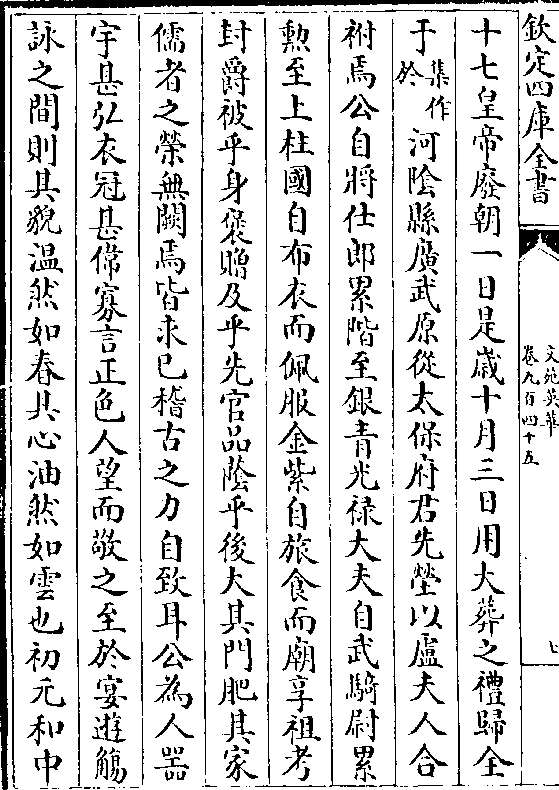 欽定四庫全書
文苑英華
卷九百四十五
七
十七皇帝廢朝一日是歲十月三日用大葬之禮歸全
于集作於河陰縣廣武原從太保府君先塋以盧夫人合
祔焉公自將仕郎累階至銀青光禄大夫自武騎尉累
勲至上柱國自布衣而佩服金紫自旅食而廟享祖考
封爵被乎身褒贈及乎先官品䕃乎後大其門肥其家
儒者之榮無闕焉皆求已稽古之力自致耳公為人器
宇甚弘衣冠甚偉寡言正色人望而敬之至於宴遊觴
詠之間則其貌温然如春其心油然如雲也初元和中